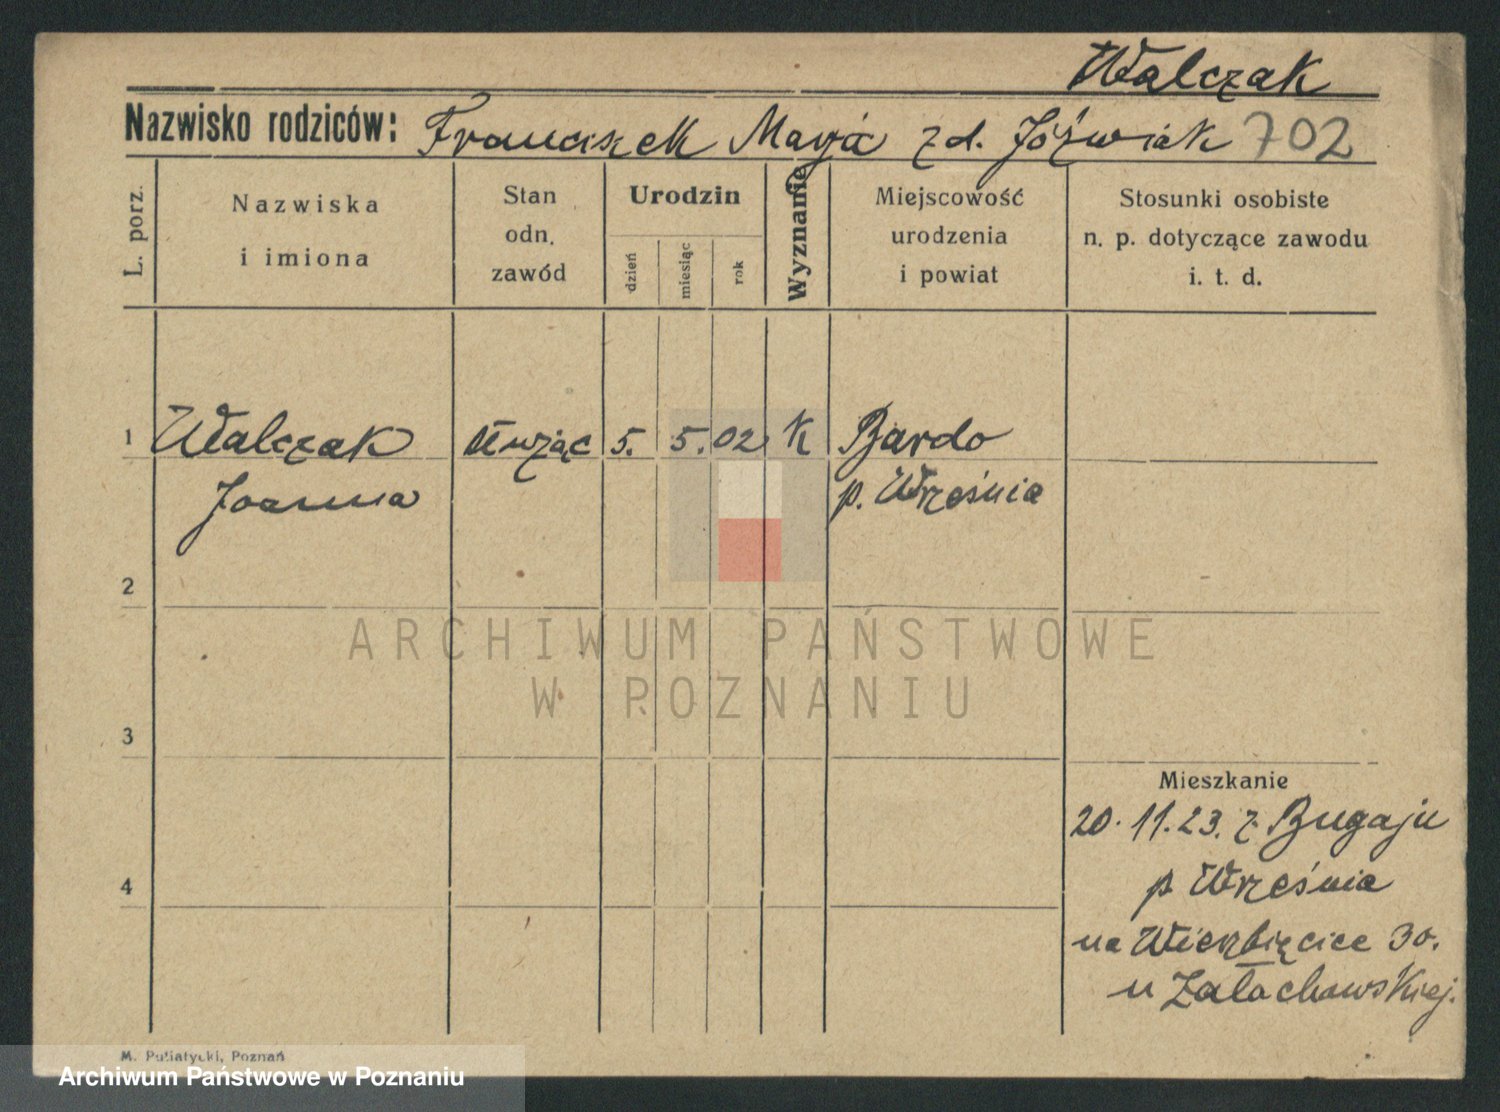 Walczak
Nazwisko rodziców: Franciszek Marja zd. Jóźwiak 702
L. porz.
Nazwiska
i imiona
Stan
odn.
zawód
Urodzin
dzień
miesiąc
rok
Wyznanie
Miejscowość
urodzenia
i powiat
Stosunki osobiste
n. p. dotyczące zawodu
i. t. d.
1 Walczak służąc 5. 5. 02 K Bardo
Joanna p. Września
2
ARCHIWUM PAŃSTWOWE
W POZNANIU
3
Mieszkanie
20. 11. 23. z Bugaju
4 p Września
na Wierzbięcice 30.
u Załachowskiej.
M. Putiatycki, Poznań
Archiwum Państwowe w Poznaniu